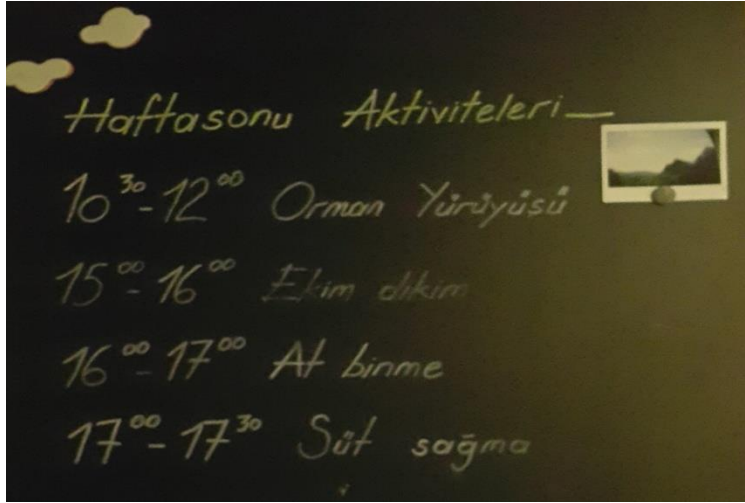 Haftasonu Aktiviteleri
10³⁰-12⁰⁰ Orman Yürüyüsü
15⁰⁰-16⁰⁰ Ekim dikim
16⁰⁰-17⁰⁰ At binme
17⁰⁰-17³⁰ Süt sağma